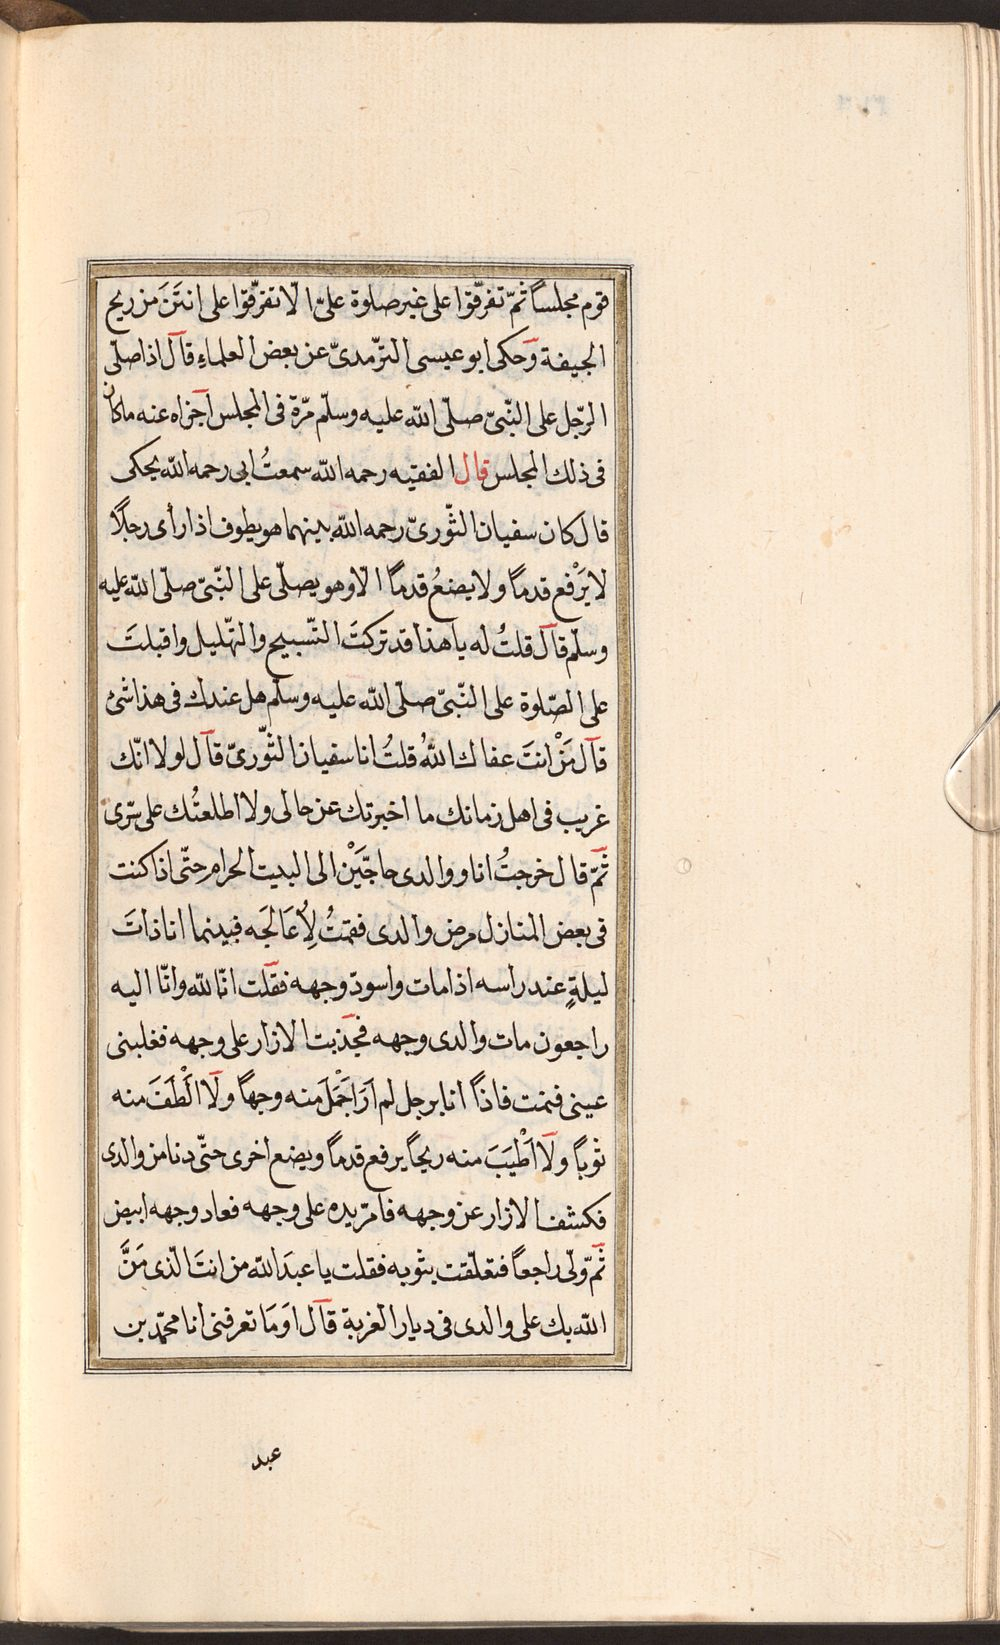 قوم مجلساً ثمّ تفرّقوا على غير صلوة علىّ الّا تفرّقوا على انتَنَ من ريح
الجيفة وحكى ابو عيسى الترّمدىّ عن بعض العلماءِ قال اذا صلّى
الرّجل على النّبىّ صلّى الله عليه وسلّم مرّة فى المجلس اجزاه عنه ماكان
فى ذلك المجلس قال الفقيه رحمه الله سمعتُ ابى رحمه الله يحكى
قال كان سفيان الثّورىّ رحمه الله بينهما هو يطوف اذ ارأى رجلاً
لا يَرْفع قدماً ولا يضعُ قدماً الّا وهو يصلّى على النّبىّ صلّى الله عليه
وسلّم قال قلتُ له يا هذا قد تركتَ التّسبيح والتّهليل واقبلتَ
على الصّلوة على النّبىّ صلّى الله عليه وسلّم هل عندك فى هذا شئ
قال مَنْ انتَ عفاك اللهُ قلتُ انا سفيان الثّورىّ قال لولا انّك
غريب فى اهل زمانك ما اخبرتك عن حالى ولا اطلعتُك على سّرى
ثمّ قال خرجتُ انا ووالدى حاجّيَنْ الى البيت الحرام حتّى اذا كنت
فى بعض المنازل مرض والدى فقمتُ لِاُعَالجَه فبينما انا ذاتَ
ليلةٍ عند راسه اذ امات واسودّ وجهه فقلت انّا لله وانّا اليه
راجعون مات والدى وجهه فجذبت الازار على وجهه فغلبنى
عينى فنمت فاذاً انا برجل لم اَرَ اَجْمَلَ منه وجهاً ولا الَْطَفَ منه
ثوباً ولا اَطْيَبَ منه ريحاً يرفع قدماً ويضع اخرى حتّى دنا من والدى
فكشف الازار عن وجهه فامرّ يده على وجهه فعاد وجهه ابيض
ثمّ ولّى راجعاً فتعلّقت بثوبه فقلت يا عبدَ الله من انتَ الّذى مَنَّ
الله بك على والدى فى ديار الغربة قال اوَمَا تعرفنى انا محمّد بن
عبد